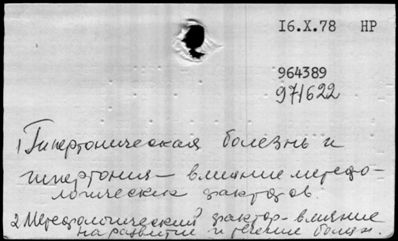 16.X.78 НР
964389
971622
1) Гипертоническая болезнь и
гипертония — влияние метеоро-
логических факторов.
2. Метеорологический фактор - влияние
на развитие и течение болезн.